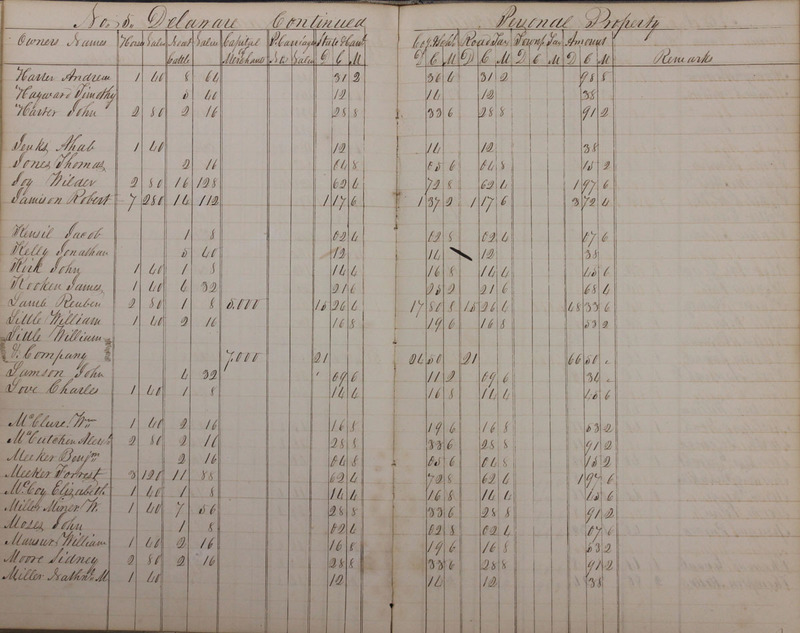 No. 8. Delaware Continued Personal Property
Owners Names Horses Value Neat Cattle Value Capital Merchants P. Carriages No Value State & Canl D C M Coy & Schl D C M Road Tax D C M Townp Tax D C M Amount D C M Remarks
Harter Andrew 1 40 8 64 31 2 36 4 31 2 98 8
Hayward Timothy 5 40 12 14 12 38
Harter John 2 80 2 16 28 8 33 6 28 8 91 2
Jenks Ahab 1 40 12 14 12 38
Jones Thomas 2 16 04 8 05 6 04 8 15 2
Joy Wilder 2 80 16 128 62 4 72 8 62 4 1 97 6
Jamison Robert 7 280 14 112 1 17 6 1 37 2 1 17 6 3 72 4
Kensil Jacob 1 8 02 4 02 8 02 4 07 6
Kelly Jonathan 5 40 12 14 12 38
Kirk John 1 40 1 8 14 4 16 8 14 4 45 6
Kooken James 1 40 4 32 21 6 25 2 21 6 68 4
Lamb Reuben 2 80 1 8 5.000 15 26 4 17 80 8 15 26 4 48 33 6
Little William 1 40 2 16 16 8 19 6 16 8 53 2
Little William
& Company 7.000 21 24 50 21 66 50
Lamson John 4 32 09 6 11 2 09 6
Love Charles 1 40 1 8 14 4 16 8 14 4 45 6
McClure Wm 1 40 2 16 16 8 19 6 16 8 53 2
McCutchen Alexr 2 80 2 16 28 8 33 6 28 8 91 2
Meeker Benjn 2 16 04 8 05 6 04 8 15 2
Meeker Forrest 3 120 11 88 62 4 72 8 62 4 1 97 6
McCoy Elizabeth 1 40 1 8 14 4 16 8 14 4 45 6
Miller Miner W. 1 40 7 56 28 8 33 6 28 8 91 2
Moses John 1 8 02 4 02 8 02 4 07 6
Mansur William 1 40 2 16 16 8 19 6 16 8 53 2
Moore Sidney 2 80 2 16 28 8 33 6 28 8 91 2
Miller Nathnl M 1 40 12 14 12 38